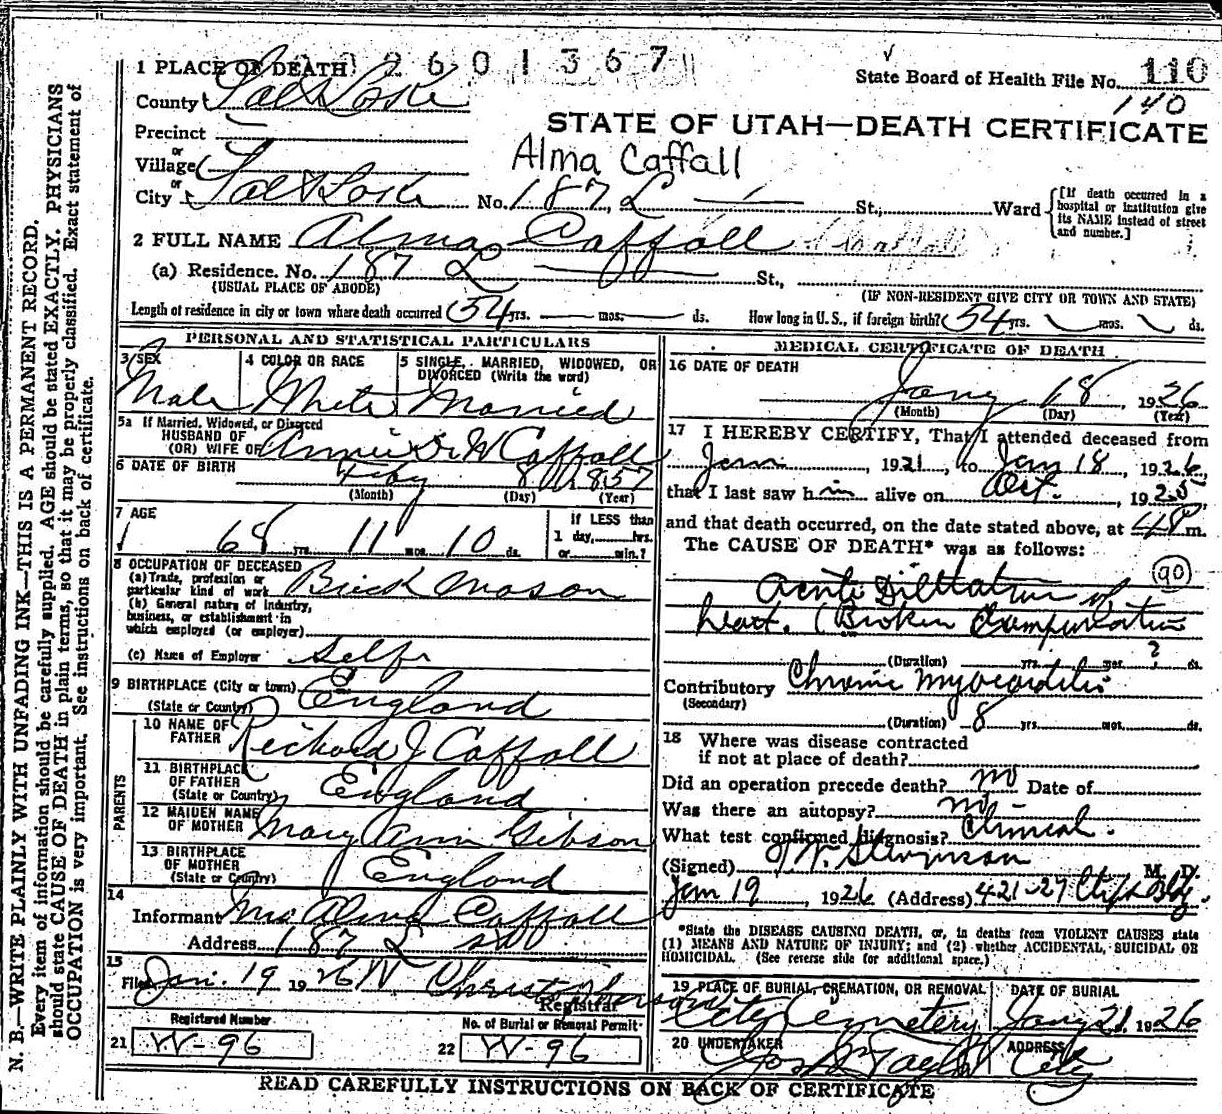 N. B.—WRITE PLAINLY WITH UNFADING INK—THIS IS A PERMANENT RECORD.
Every item of information should be carefully supplied. AGE should be stated EXACTLY. PHYSICIANS
should state CAUSE OF DEATH in plain terms, so that it may be properly classified. Exact statement of
OCCUPATION is very important. See instructions on back of certificate.
2601367
State Board of Health File No. 110
140
1 PLACE OF DEATH
County Salt Lake
STATE OF UTAH—DEATH CERTIFICATE
Precinct
or
Village
Alma Caffall
or
City Salt Lake No. 187 L St., Ward
[If death occurred in a hospital or institution give its NAME instead of street and number.]
2 FULL NAME Alma Caffall
(a) Residence. No. 187 L St.,
(USUAL PLACE OF ABODE) (IF NON-RESIDENT GIVE CITY OR TOWN AND STATE)
Length of residence in city or town where death occurred 54 yrs. mos. ds. How long in U.S., if foreign birth? 54 yrs. mos. ds.
PERSONAL AND STATISTICAL PARTICULARS
3 SEX Male
4 COLOR OR RACE White
5 SINGLE, MARRIED, WIDOWED, OR DIVORCED (Write the word) Married
5a If Married, Widowed, or Divorced
HUSBAND OF
(OR) WIFE OF Annie W Caffall
6 DATE OF BIRTH Feby 8 1857
(Month) (Day) (Year)
7 AGE 68 yrs. 11 mos. 10 ds.
If LESS than
1 day, hrs.
or min.?
8 OCCUPATION OF DECEASED
(a) Trade, profession or
particular kind of work Brick Mason
(b) General nature of industry,
business, or establishment in
which employed (or employer)
(c) Name of Employer Self
9 BIRTHPLACE (City or town)
(State or Country) England
PARENTS
10 NAME OF
FATHER Richard J Caffall
11 BIRTHPLACE
OF FATHER
(State or Country) England
12 MAIDEN NAME
OF MOTHER Mary Ann Gibson
13 BIRTHPLACE
OF MOTHER
(State or Country) England
14
Informant Mrs Alma Caffall
Address 187 L
15
Filed Jan. 19 1926 W Christopherson
Registrar
Registered Number
21 W-96
No. of Burial or Removal Permit
22 W-96
MEDICAL CERTIFICATE OF DEATH
16 DATE OF DEATH
Jany 18 1926
(Month) (Day) (Year)
17 I HEREBY CERTIFY, That I attended deceased from
Jan, 1921, to Jan 18, 1926,
that I last saw him alive on Oct. 1925
and that death occurred, on the date stated above, at 4 P m.
The CAUSE OF DEATH* was as follows:
90
Acute Dilitation of
heart. (Broken Compensation
(Duration) yrs. mos. ? ds.
Contributory Chronic Myocarditis
(Secondary)
(Duration) 8 yrs. mos. ds.
18 Where was disease contracted
if not at place of death?
Did an operation precede death? no Date of
Was there an autopsy? no -
What test confirmed diagnosis? Clinical.
(Signed) Stevenson M. D.
Jan 19, 1926 (Address) 421-27 Clift Bldg.
*State the DISEASE CAUSING DEATH, or, in deaths from VIOLENT CAUSES state
(1) MEANS AND NATURE OF INJURY; and (2) whether ACCIDENTAL, SUICIDAL OR
HOMICIDAL. (See reverse side for additional space.)
19 PLACE OF BURIAL, CREMATION, OR REMOVAL DATE OF BURIAL
City Cemetery Jany 21. 1926
20 UNDERTAKER ADDRESS
Jos Taylor City
READ CAREFULLY INSTRUCTIONS ON BACK OF CERTIFICATE